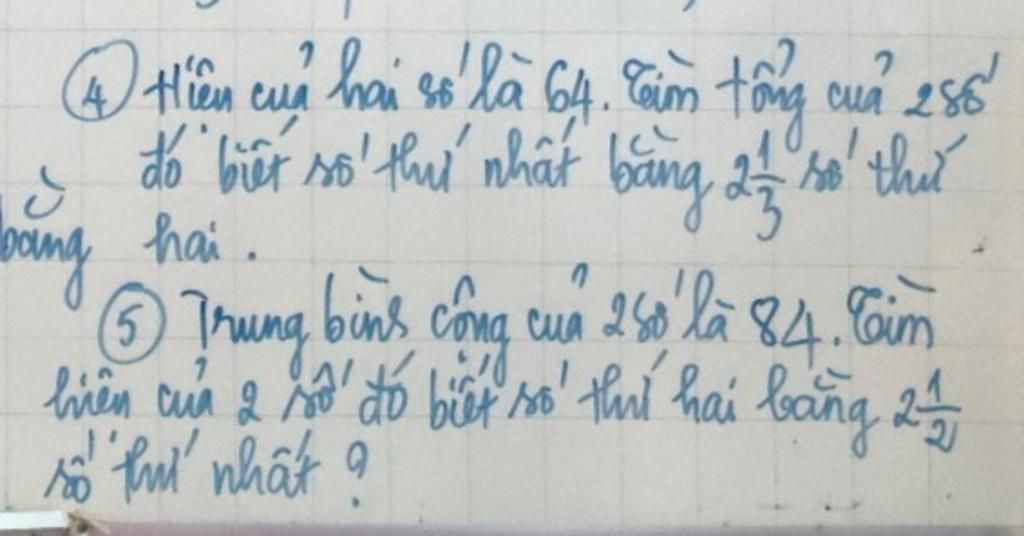 ④ Hiệu của hai số là 64. Tìm tổng của 2 số
đó biết số thứ nhất bằng 2 1/3 số thứ
bằng hai.
⑤ Trung bình cộng của 2 số là 84. Tìm
hiệu của 2 số đó biết số thứ hai bằng 2 1/2
số thứ nhất ?